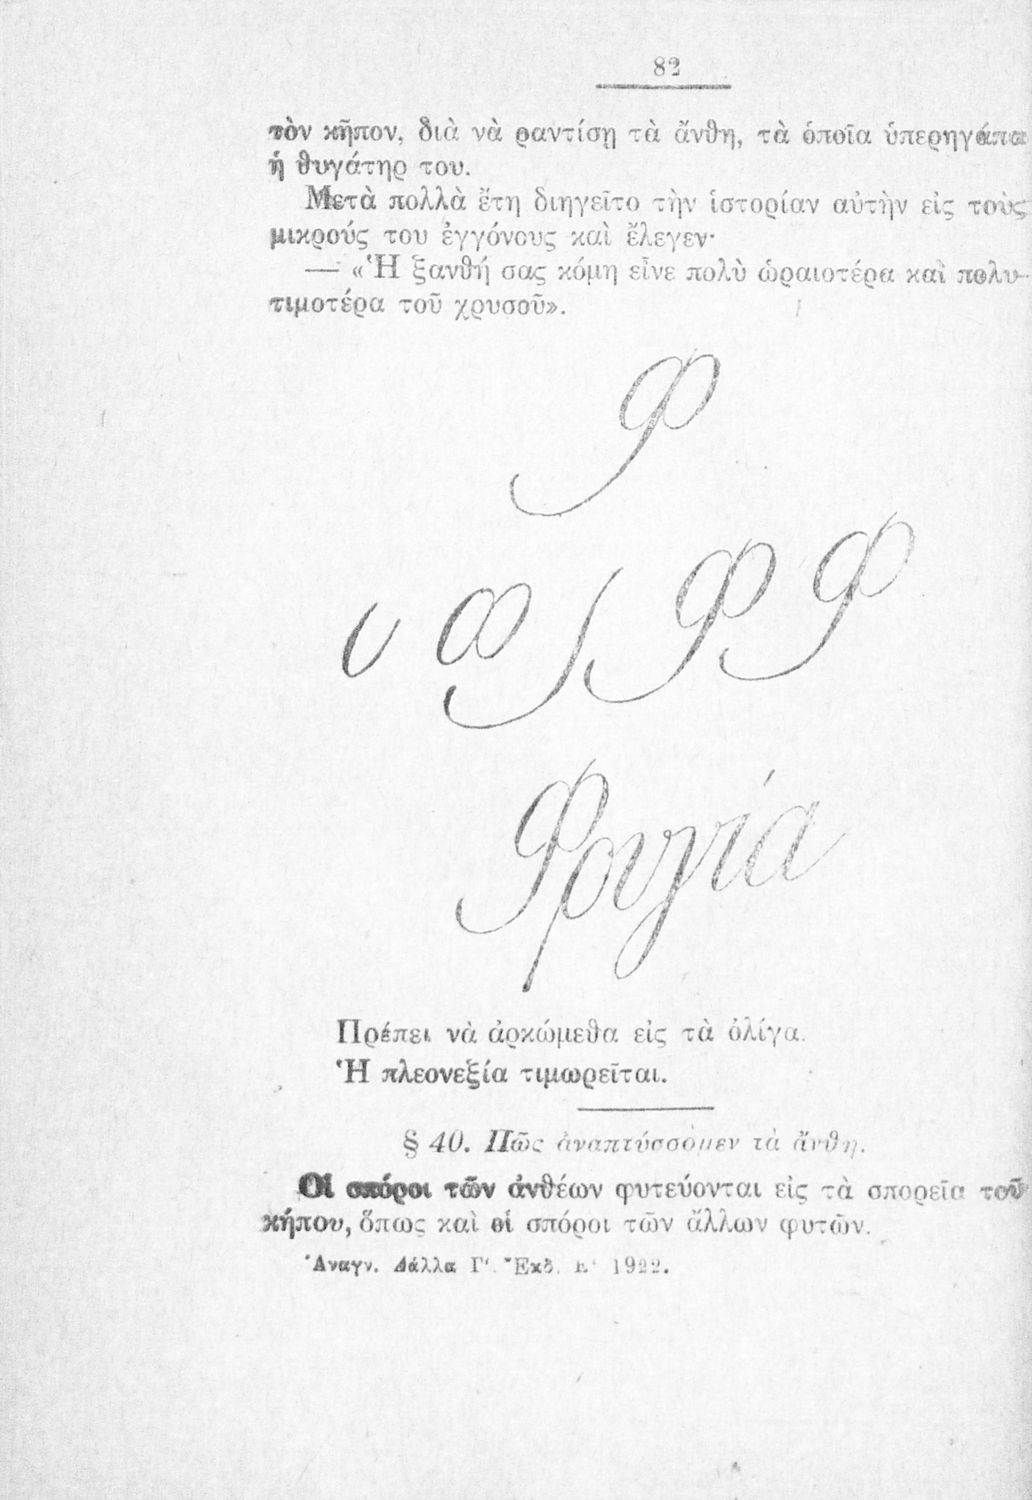 82
τὸν κῆπον, διὰ νὰ ραντίσῃ τὰ ἄνθη, τὰ ὁποῖα ὑπερηγάπα
ἡ θυγάτηρ του.
Μετὰ πολλὰ ἔτη διηγεῖτο τὴν ἱστορίαν αὐτὴν εἰς τοὺς
μικρούς του ἐγγόνους καὶ ἔλεγεν·
— «Ἡ ξανθή σας κόμη εἶνε πολὺ ὡραιοτέρα καὶ πολυ-
τιμοτέρα τοῦ χρυσοῦ».
Φ
υ φ ϳ Φ Φ
Φρυγία
Πρέπει νὰ ἀρκώμεθα εἰς τὰ ὀλίγα.
Ἡ πλεονεξία τιμωρεῖται.
§ 40. Πῶς ἀναπτύσσομεν τὰ ἄνθη.
Οἱ σπόροι τῶν ἀνθέων φυτεύονται εἰς τὰ σπορεῖα τοῦ
κήπου, ὅπως καὶ οἱ σπόροι τῶν ἄλλων φυτῶν.
Ἀναγν. Δάλλα Γ΄. Ἔκδ. 1922.